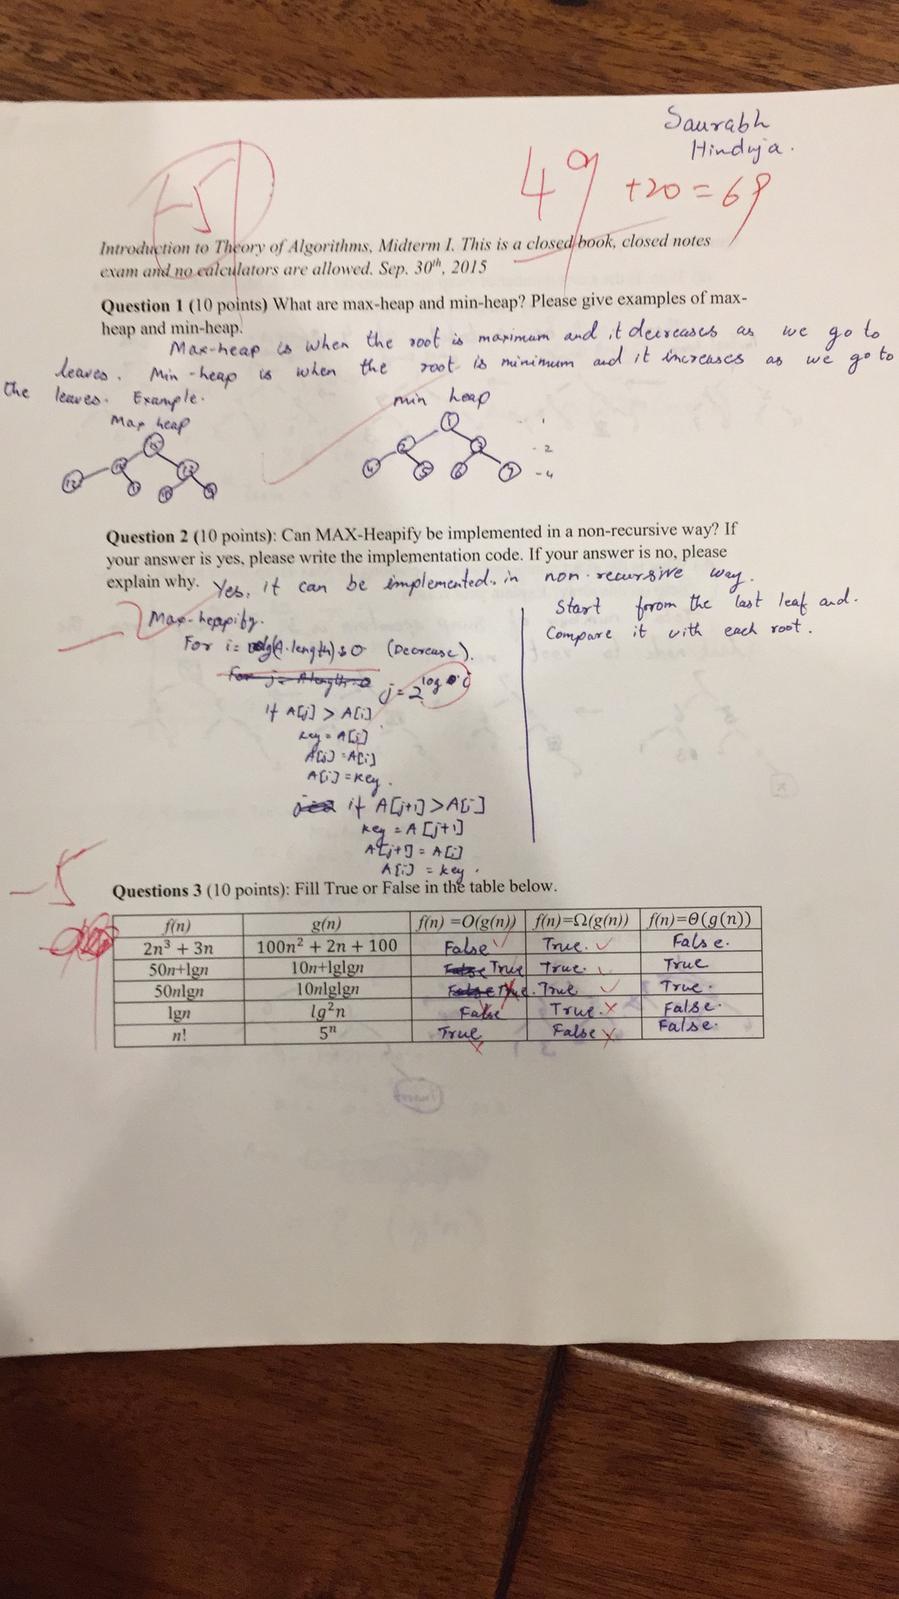 Saurabh
Hinduja.
49 +20 = 69
Introduction to Theory of Algorithms, Midterm I. This is a closed book, closed notes
exam and no calculators are allowed. Sep. 30th, 2015
Question 1 (10 points) What are max-heap and min-heap? Please give examples of max-
heap and min-heap.
Max-heap is when the root is maximum and it decreases as we go to
leaves. Min-heap is when the root is minimum and it increases as we go to
the leaves. Example.
Max heap
min heap
1
2 3
4 5 6 7
- 1
- 2
- 4
Question 2 (10 points): Can MAX-Heapify be implemented in a non-recursive way? If
your answer is yes, please write the implementation code. If your answer is no, please
explain why. Yes, it can be implemented in non-recursive way.
Max-heppify.
For i = (A.length) 0 (Decrease).
j = 2
If A[j] > A[i]
key = A[j]
A[j] = A[i]
A[i] = key.
if A[j+1] > A[i]
key = A[j+1]
A[j+1] = A[i]
A[i] = key.
Start from the last leaf and.
Compare it with each root.
-5
Questions 3 (10 points): Fill True or False in the table below.
f(n) g(n) f(n) =O(g(n)) f(n)=Ω(g(n)) f(n)=Θ(g(n))
2n³ + 3n 100n² + 2n + 100 False ✓ True. ✓ False.
50n+lgn 10n+lglgn True True. True
50nlgn 10nlglgn True. True ✓ True.
lgn lg²n False True. ✗ False.
n! 5ⁿ True ✗ False ✗ False.